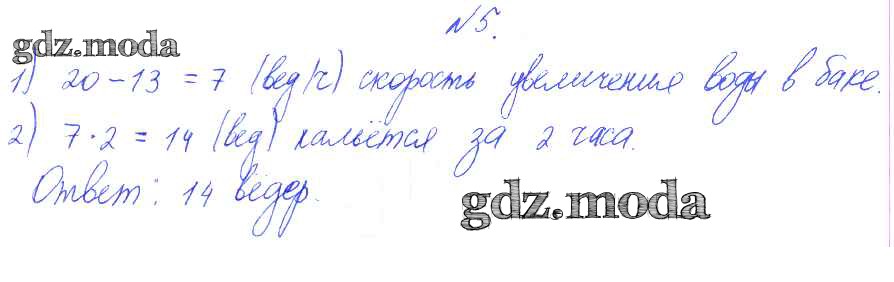 №5.
gdz.moda
1) 20 - 13 = 7 (вед/ч) скорость увеличения воды в баке.
2) 7 · 2 = 14 (вед) нальётся за 2 часа.
Ответ: 14 вёдер.
gdz.moda